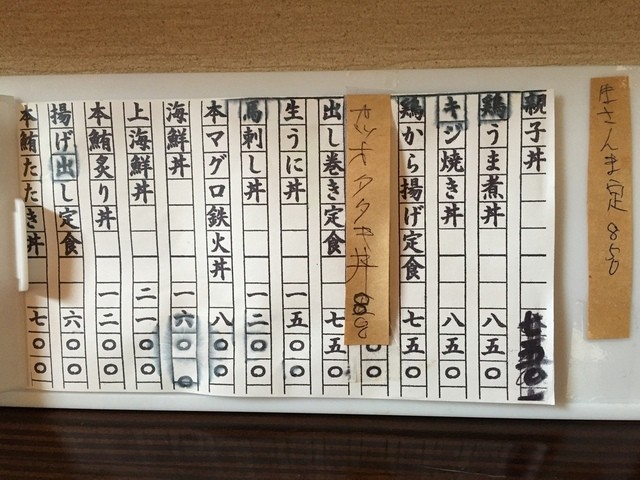 生さんま定 850
親子丼 七五〇
鶏うま煮丼 八五〇
キジ焼き丼 八五〇
鶏から揚げ定食 八五〇
カツオタタキ丼 800
出し巻き定食 七五〇
生うに丼 一五〇〇
馬刺し丼 一二〇〇
本マグロ鉄火丼 八〇〇
海鮮丼 一六〇〇
上海鮮丼 二一〇〇
本鮪炙り丼 一二〇〇
揚げ出し定食 六〇〇
本鮪たたき丼 七〇〇